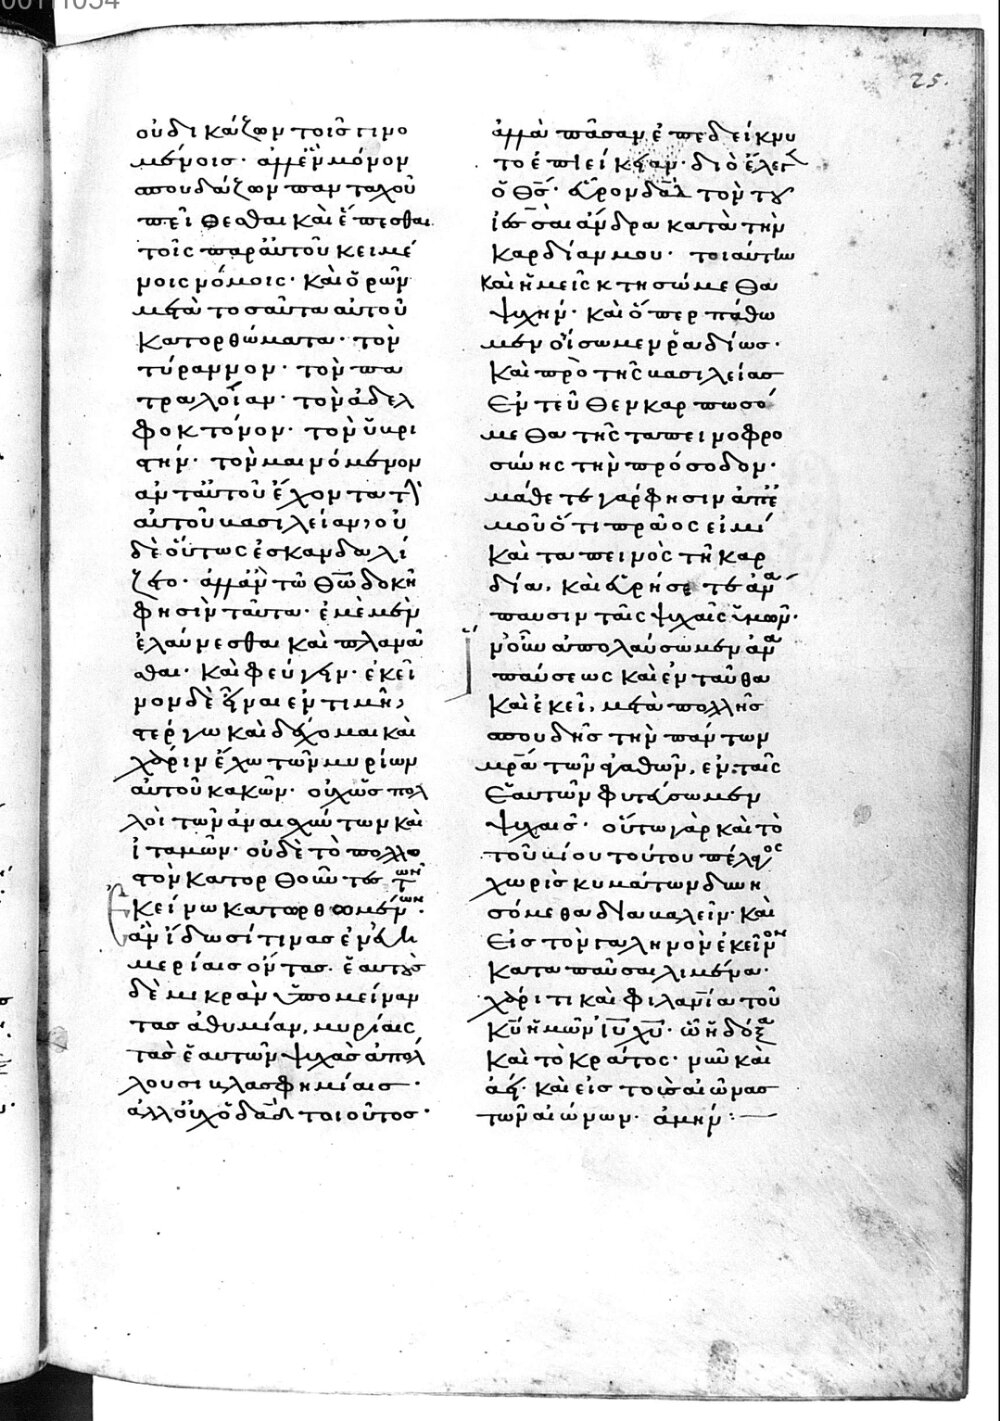 25.
οὐδικάζων τοῖς γινο
μένοις· ἀλλ' ἓν μόνον
σπουδάζων πανταχοῦ
πείθεσθαι καὶ ἕπεσθαι
τοῖς παρ' αὐτοῦ κειμέ
νοις νόμοις· καὶ ὁρῶν
μετὰ τοσαῦτα αὐτοῦ
κατορθώματα· τὸν
τύραννον· τὸν πα
τραλοίαν· τὸν ἀδελ
φοκτόνον· τὸν ὑβρι
στήν· τὸν μαινόμενον
ἀντ' αὐτοῦ ἔχοντα τὴν
αὐτοῦ βασιλείαν, οὐ
δὲ οὕτως ἐσκανδαλί
ζετο· ἀλλ' ἂν τῶ θῶ δοκῆ
φησὶν ταῦτα· ἐμὲ μὲν
ἐλαύνεσθαι καὶ πλανᾶ
σθαι· καὶ φεύγειν· ἐκεῖ
νον δὲ εἶναι ἐν τιμῆ,
στέργω καὶ δέχομαι καὶ
χάριν ἔχω τῶν μυρίων
αὐτοῦ κακῶν· οὐχ ὡς πολ
λοὶ τῶν ἀναισχύντων καὶ
ἰταμῶν· οὐδὲ τὸ πολλο
στὸν κατορθοῦντες τῶν
ἐκείνω κατορθωμένων·
ἂν ἴδωσί τινας ἐν εὐη
μερίαις ὄντας· ἑαυτοὺς
δὲ μικρὰν ὑπομείναν
τας ἀθυμίαν, μυρίαις
τὰς ἑαυτῶν ψυχὰς ἀπολ
λουσι βλασφημίαις·
ἀλλ' οὐχ ὁ δαδ τοιοῦτος·
ἀλλὰ πᾶσαν ἐπεδείκνυ
το ἐπιείκειαν· διὸ ἔλεγεν
ὁ θς· εὗρον δαδ τὸν τοῦ
ἰεσσαὶ ἄνδρα κατὰ τὴν
καρδίαν μου· τοιαύτην
καὶ ἡμεῖς κτησώμεθα
ψυχήν· καὶ ὅπερ πάθω
μεν οἴσωμεν ῥαδίως·
καὶ πρὸ τῆς βασιλείας
ἐντεῦθεν καρπωσό
μεθα τῆς ταπεινοφρο
σύνης τὴν πρόσοδον·
μάθετε γάρ φησιν ἀπ' ἐ
μοῦ ὅτι πρᾶος εἰμὶ
καὶ ταπεινὸς τῆ καρ
δία, καὶ εὑρήσετε ἀνά
παυσιν ταῖς ψυχαῖς ὑμῶν·
ἵν' οὖν ἀπολαύσωμεν ἀνα
παύσεως καὶ ἐνταῦθα
καὶ ἐκεῖ, μετὰ πολλῆς
σπουδῆς τὴν πάντων
μρα τῶν ἀγαθῶν, ἐν ταῖς
ἑαυτῶν φυτεύσωμεν
ψυχαῖς· οὕτω γὰρ καὶ τὸ
τοῦ βίου τούτου πέλαγος
χωρὶς κυμάτων δυνη
σόμεθα διαβαλεῖν· καὶ
εἰς τὸν γαληνὸν ἐκεῖνον
καταπαῦσαι λιμένα·
χάριτι καὶ φιλανία τοῦ
κυ ἡμῶν ιυ χυ· ὧ ἡ δόξα
καὶ τὸ κράτος· νῦν καὶ
ἀεὶ· καὶ εἰς τοὺς αἰῶνας
τῶν αἰώνων· ἀμήν:—